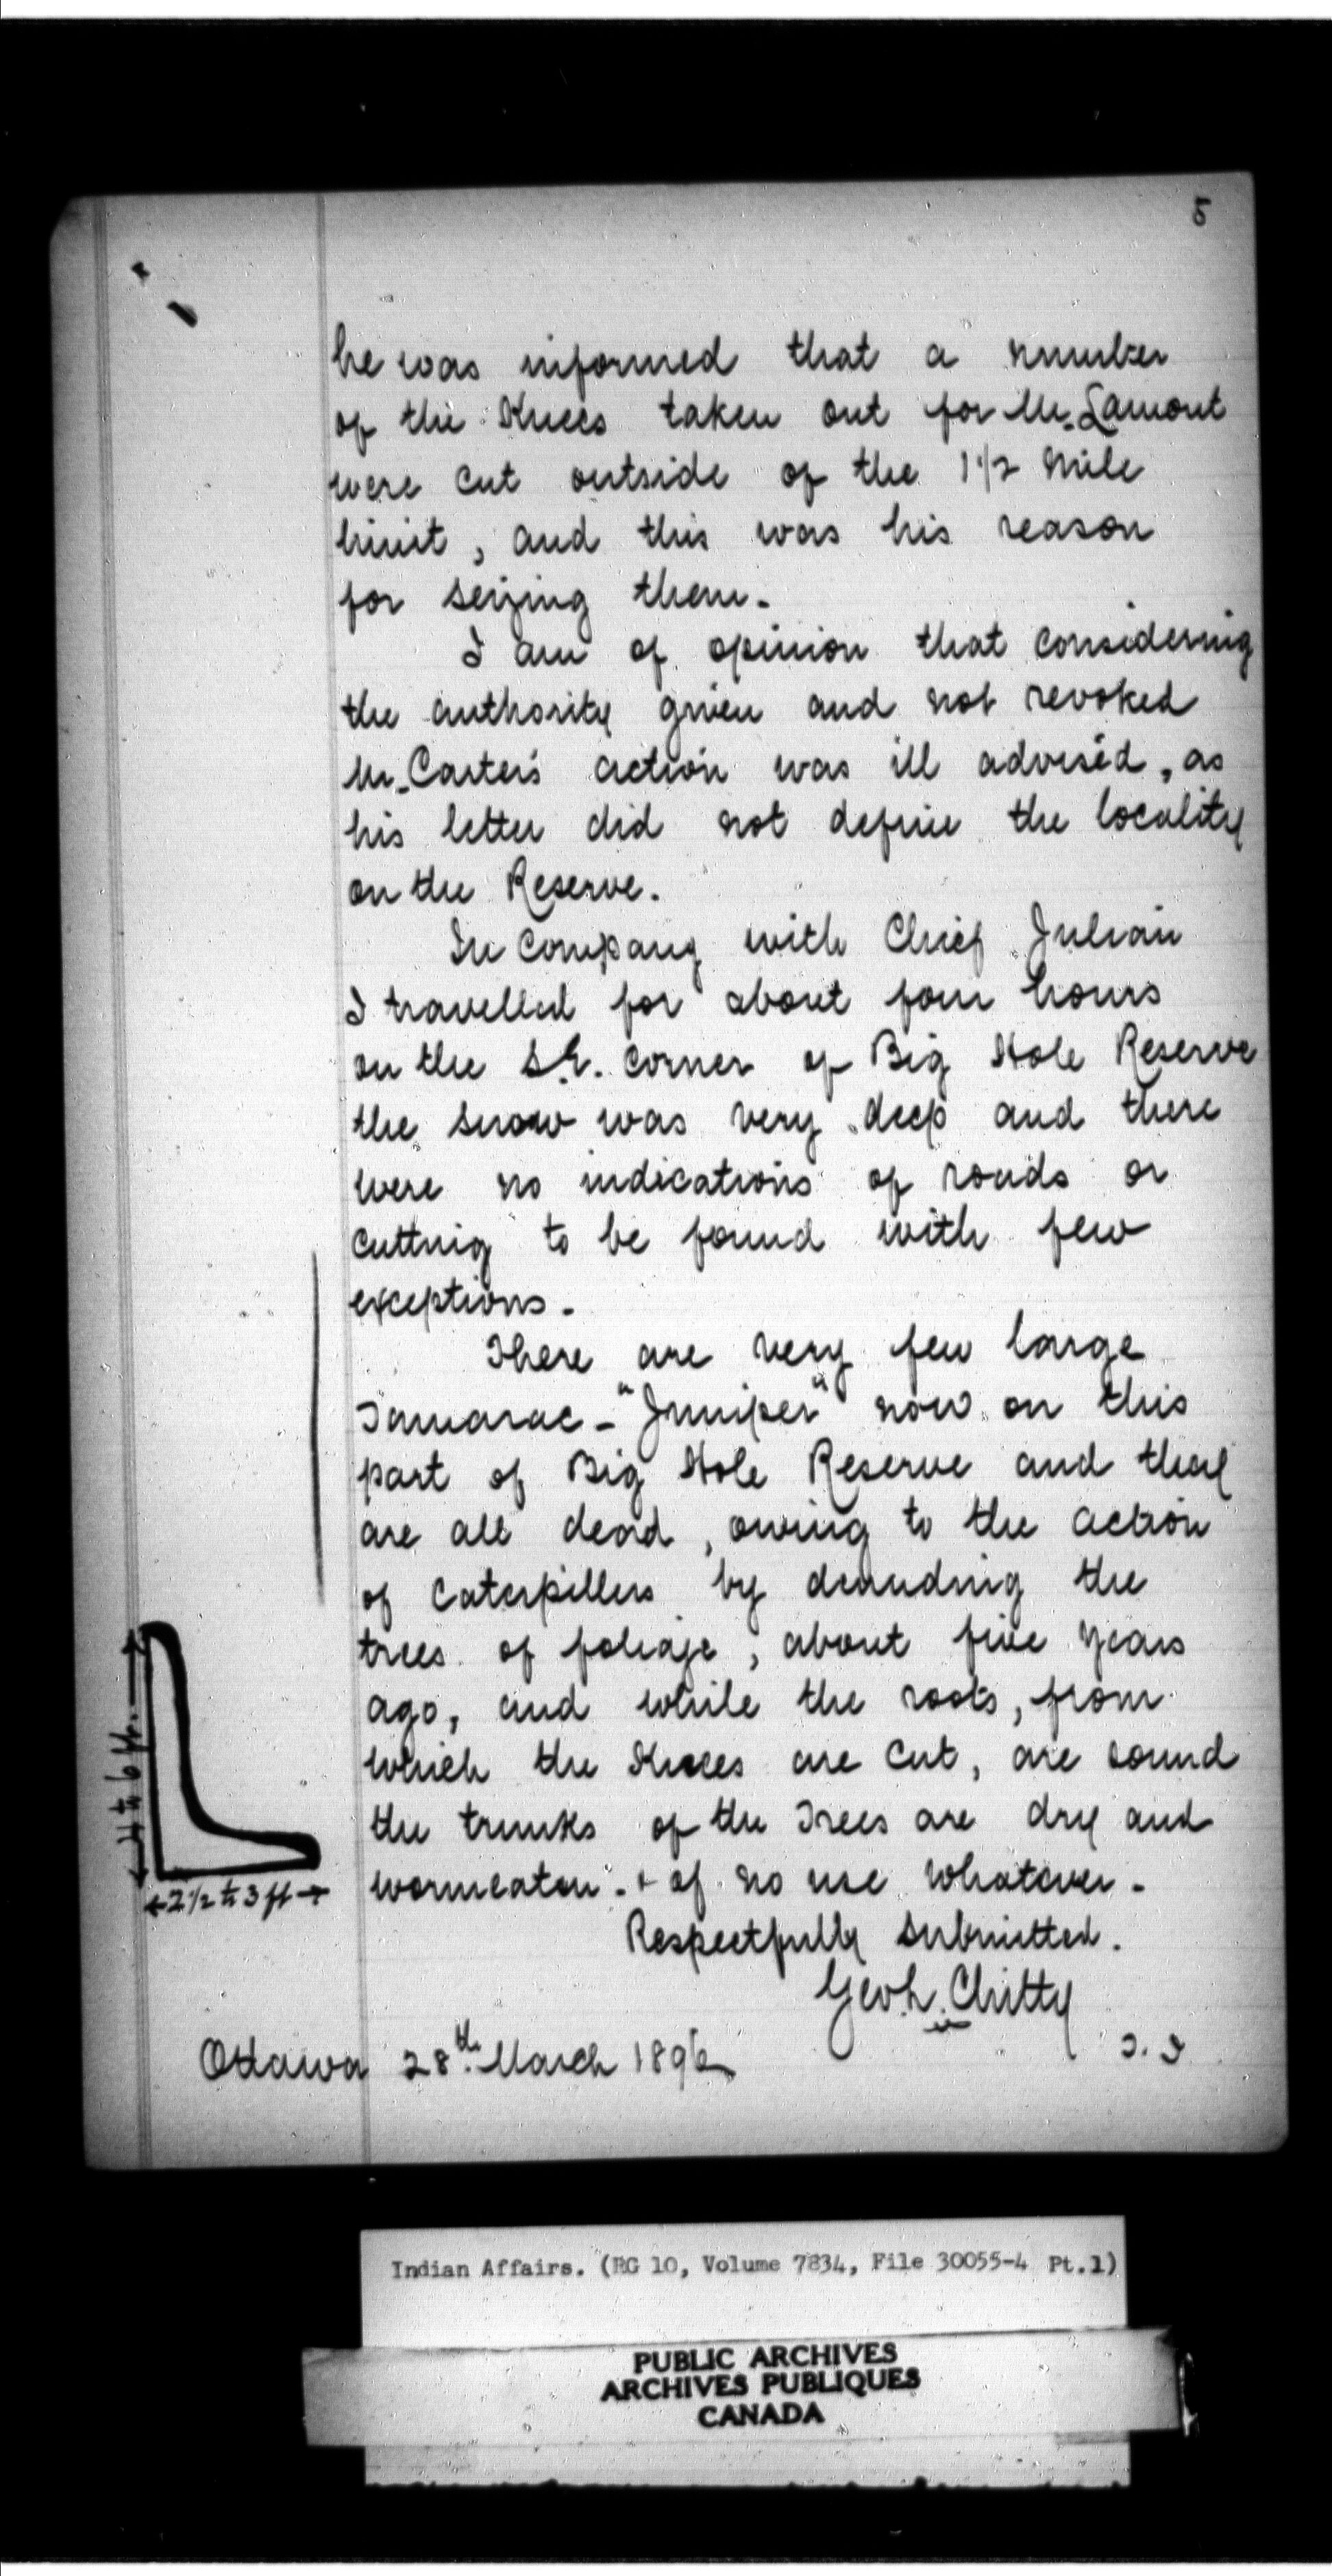 5
he was informed that a number
of the Knees taken out for Mr. Lamont
were cut outside of the 1 1/2 mile
limit, and this was his reason
for seizing them.
I am of opinion that considering
the authority given and not revoked
Mr. Carter's action was ill advised, as
his letter did not define the locality
on the Reserve.
In company with Chief Julian
I travelled for about four hours
on the S.E. corner of Big Hole Reserve
the snow was very deep and there
were no indications of roads or
cutting to be found with few
exceptions.
There are very few large
Tamarac - "Juniper" now on this
part of Big Hole Reserve and they
are all dead, owing to the action
of Caterpillers by denuding the
trees of foliage, about five years
ago, and while the roots, from
which the Knees are cut, are sound
the trunks of the Trees are dry and
wormeaton. + of no use whatever.
4 to 6 ft.
2 1/2 to 3 ft
Respectfully submitted.
Geo. L. Chitty
T. I
Ottawa 28th March 1896
Indian Affairs. (RG 10, Volume 7834, File 30055-4 Pt.1)
PUBLIC ARCHIVES
ARCHIVES PUBLIQUES
CANADA